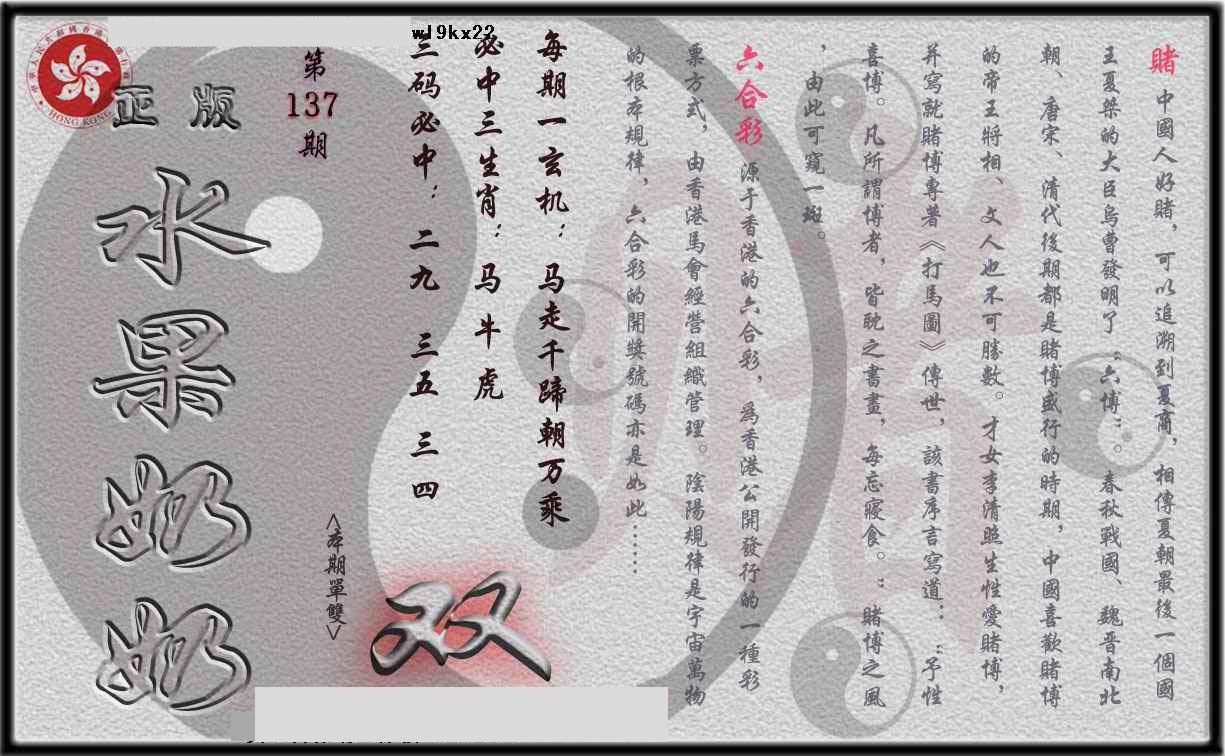 賭 中國人好賭，可以追溯到夏商，相傳夏朝最後一個國
王夏桀的大臣烏曹發明了“六博”。春秋戰國、魏晋南北
朝、唐宋、清代後期都是賭博盛行的時期，中國喜歡賭博
的帝王將相、文人也不可勝數。才女李清照生性愛賭博，
并寫就賭博專著《打馬圖》傳世，該書序言寫道：“予性
喜博。凡所謂博者，皆耽之書晝，每忘寢食。”賭博之風
，由此可窺一斑。
六合彩 源于香港的六合彩，爲香港公開發行的一種彩
票方式，由香港馬會經營組織管理。陰陽規律是宇宙萬物
的根本規律，六合彩的開獎號碼亦是如此……
每期一玄机：马走千蹄朝万乘
必中三生肖：马 牛 虎
三码必中：二九 三五 三四
wl9kx22
第
137
期
<本期單雙>
双
正版
水果奶奶
HONG KONG